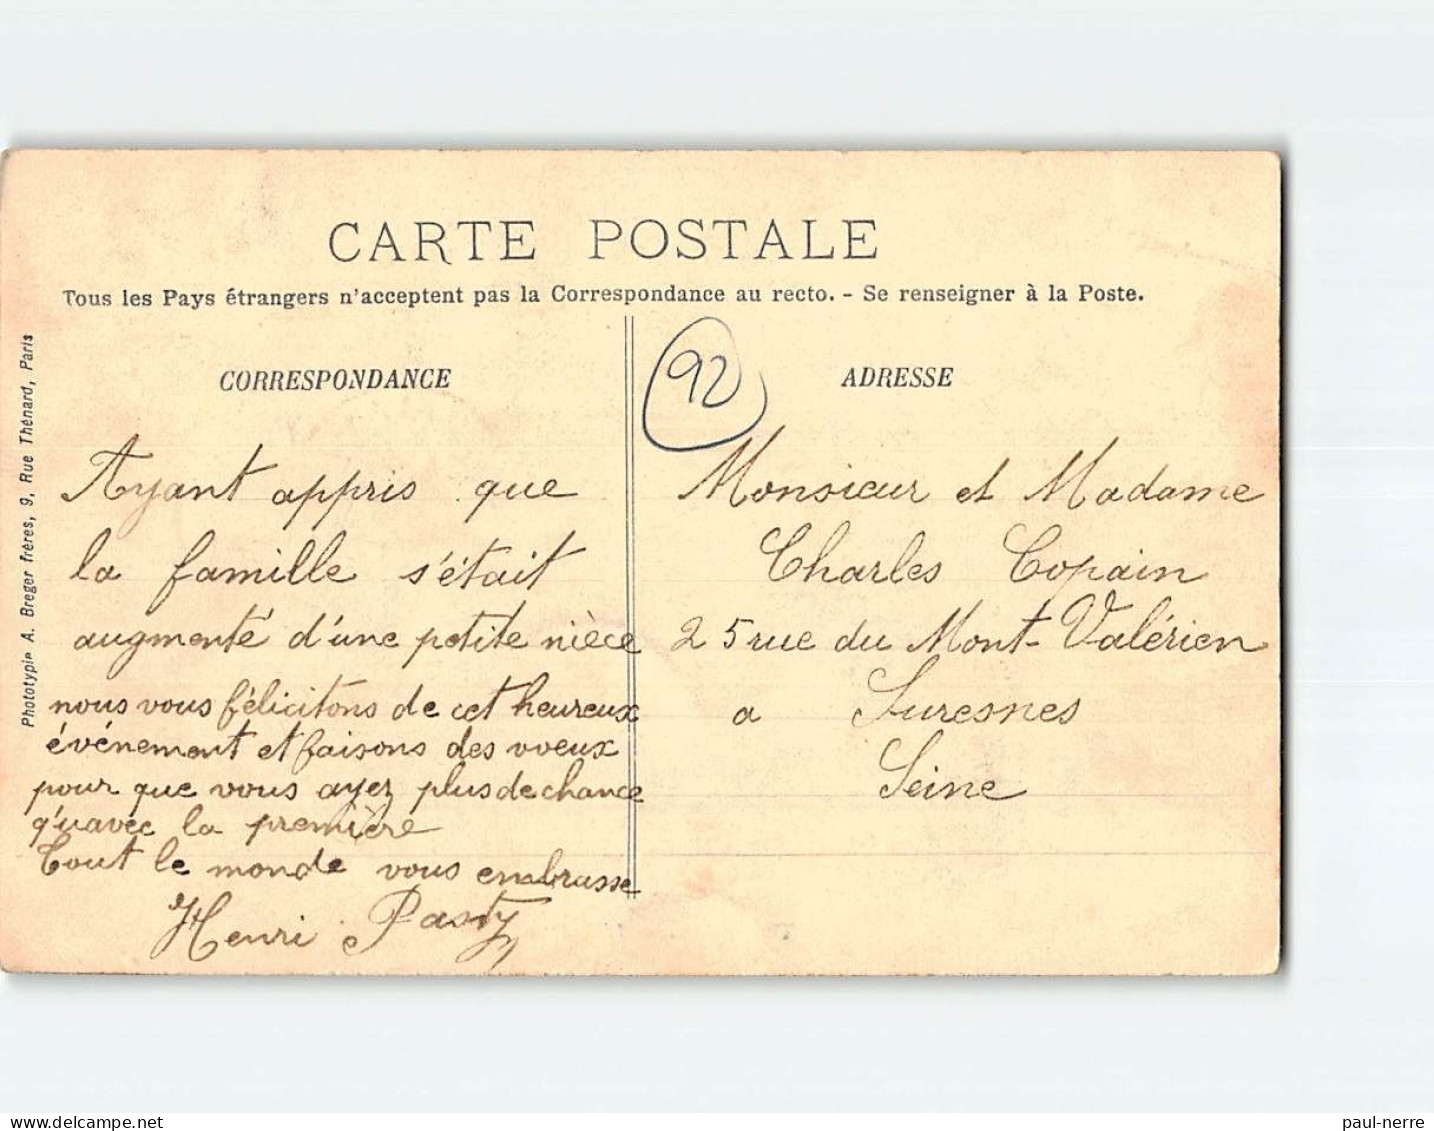 CARTE POSTALE
Tous les Pays étrangers n'acceptent pas la Correspondance au recto. - Se renseigner à la Poste.
Phototypie A. Breger frères, 9, Rue Thénard, Paris
CORRESPONDANCE
Ayant appris que
la famille s'était
augmenté d'une petite nièce
nous vous félicitons de cet heureux
événement et faisons des vveux
pour que vous ayez plus de chance
qu'avec la première
Tout le monde vous embrasse
Henri Pasty
92
ADRESSE
Monsieur et Madame
Charles Copain
25 rue du Mont-Valérien
a Suresnes
Seine
delcampe.net
paul-nerre